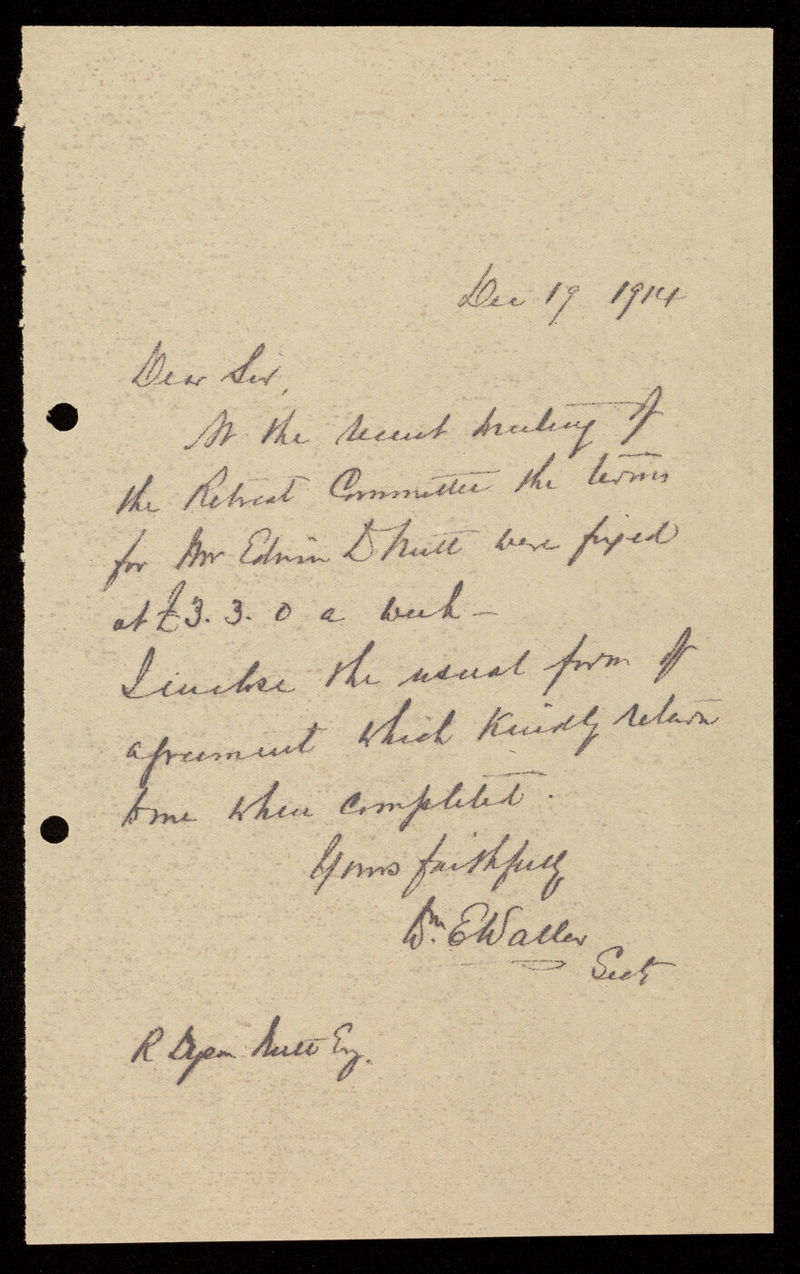 Dec 19 1914
Dear Sir,
At the recent meeting of
the Retreat Committee the terms
for Mr Edwin D Nutt were fixed
at £3. 3. 0 a week –
I enclose the usual form of
agreement which kindly return
to me when completed.
Yours faithfully
Wm. E Waller
Secty
R Dyson Nutt Esq.